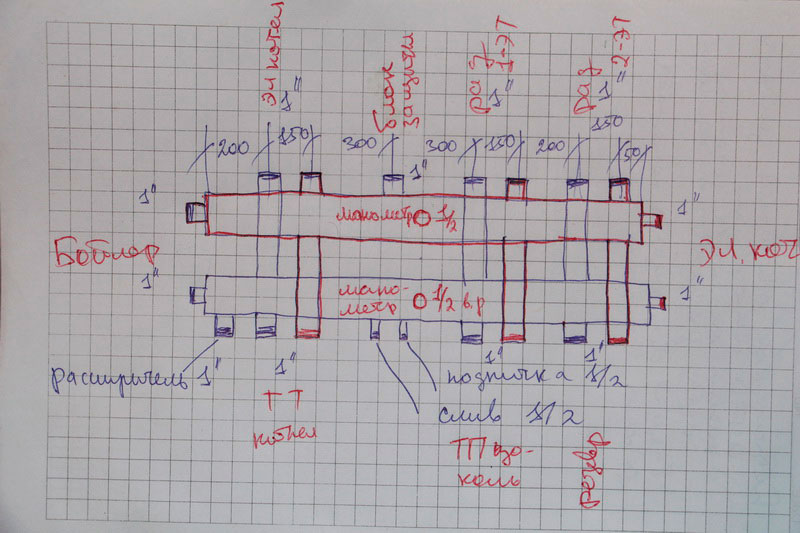 эл котел
1"
Блок
защиты
рад
1-ЭТ
1"
рад
2-ЭТ
1"
200
150
300
1"
300
150
200
150
50
1"
манометр 1/2
1"
Бойлер
эл. кот
1"
мано-
метр
1/2 в.р
1"
расширитель 1"
1"
1"
1"
подпитка 1/2
слив 1/2
ТТ
котел
ТП цо-
коль
резерв